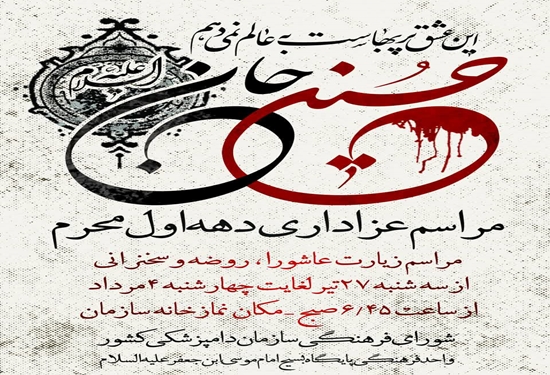 این عشق پر بهاست به عالم نمی دهم
حسین جان
علیه السلام
مراسم عزاداری دهه اول محرم
مراسم زیارت عاشورا، روضه و سخنرانی
از سه شنبه ۲۷ تیر لغایت چهارشنبه ۴ مرداد
از ساعت ۶/۴۵ صبح - مکان نمازخانه سازمان
شورای فرهنگی سازمان دامپزشکی کشور
واحد فرهنگی پایگاه بسیج امام موسی ابن جعفر علیه السلام